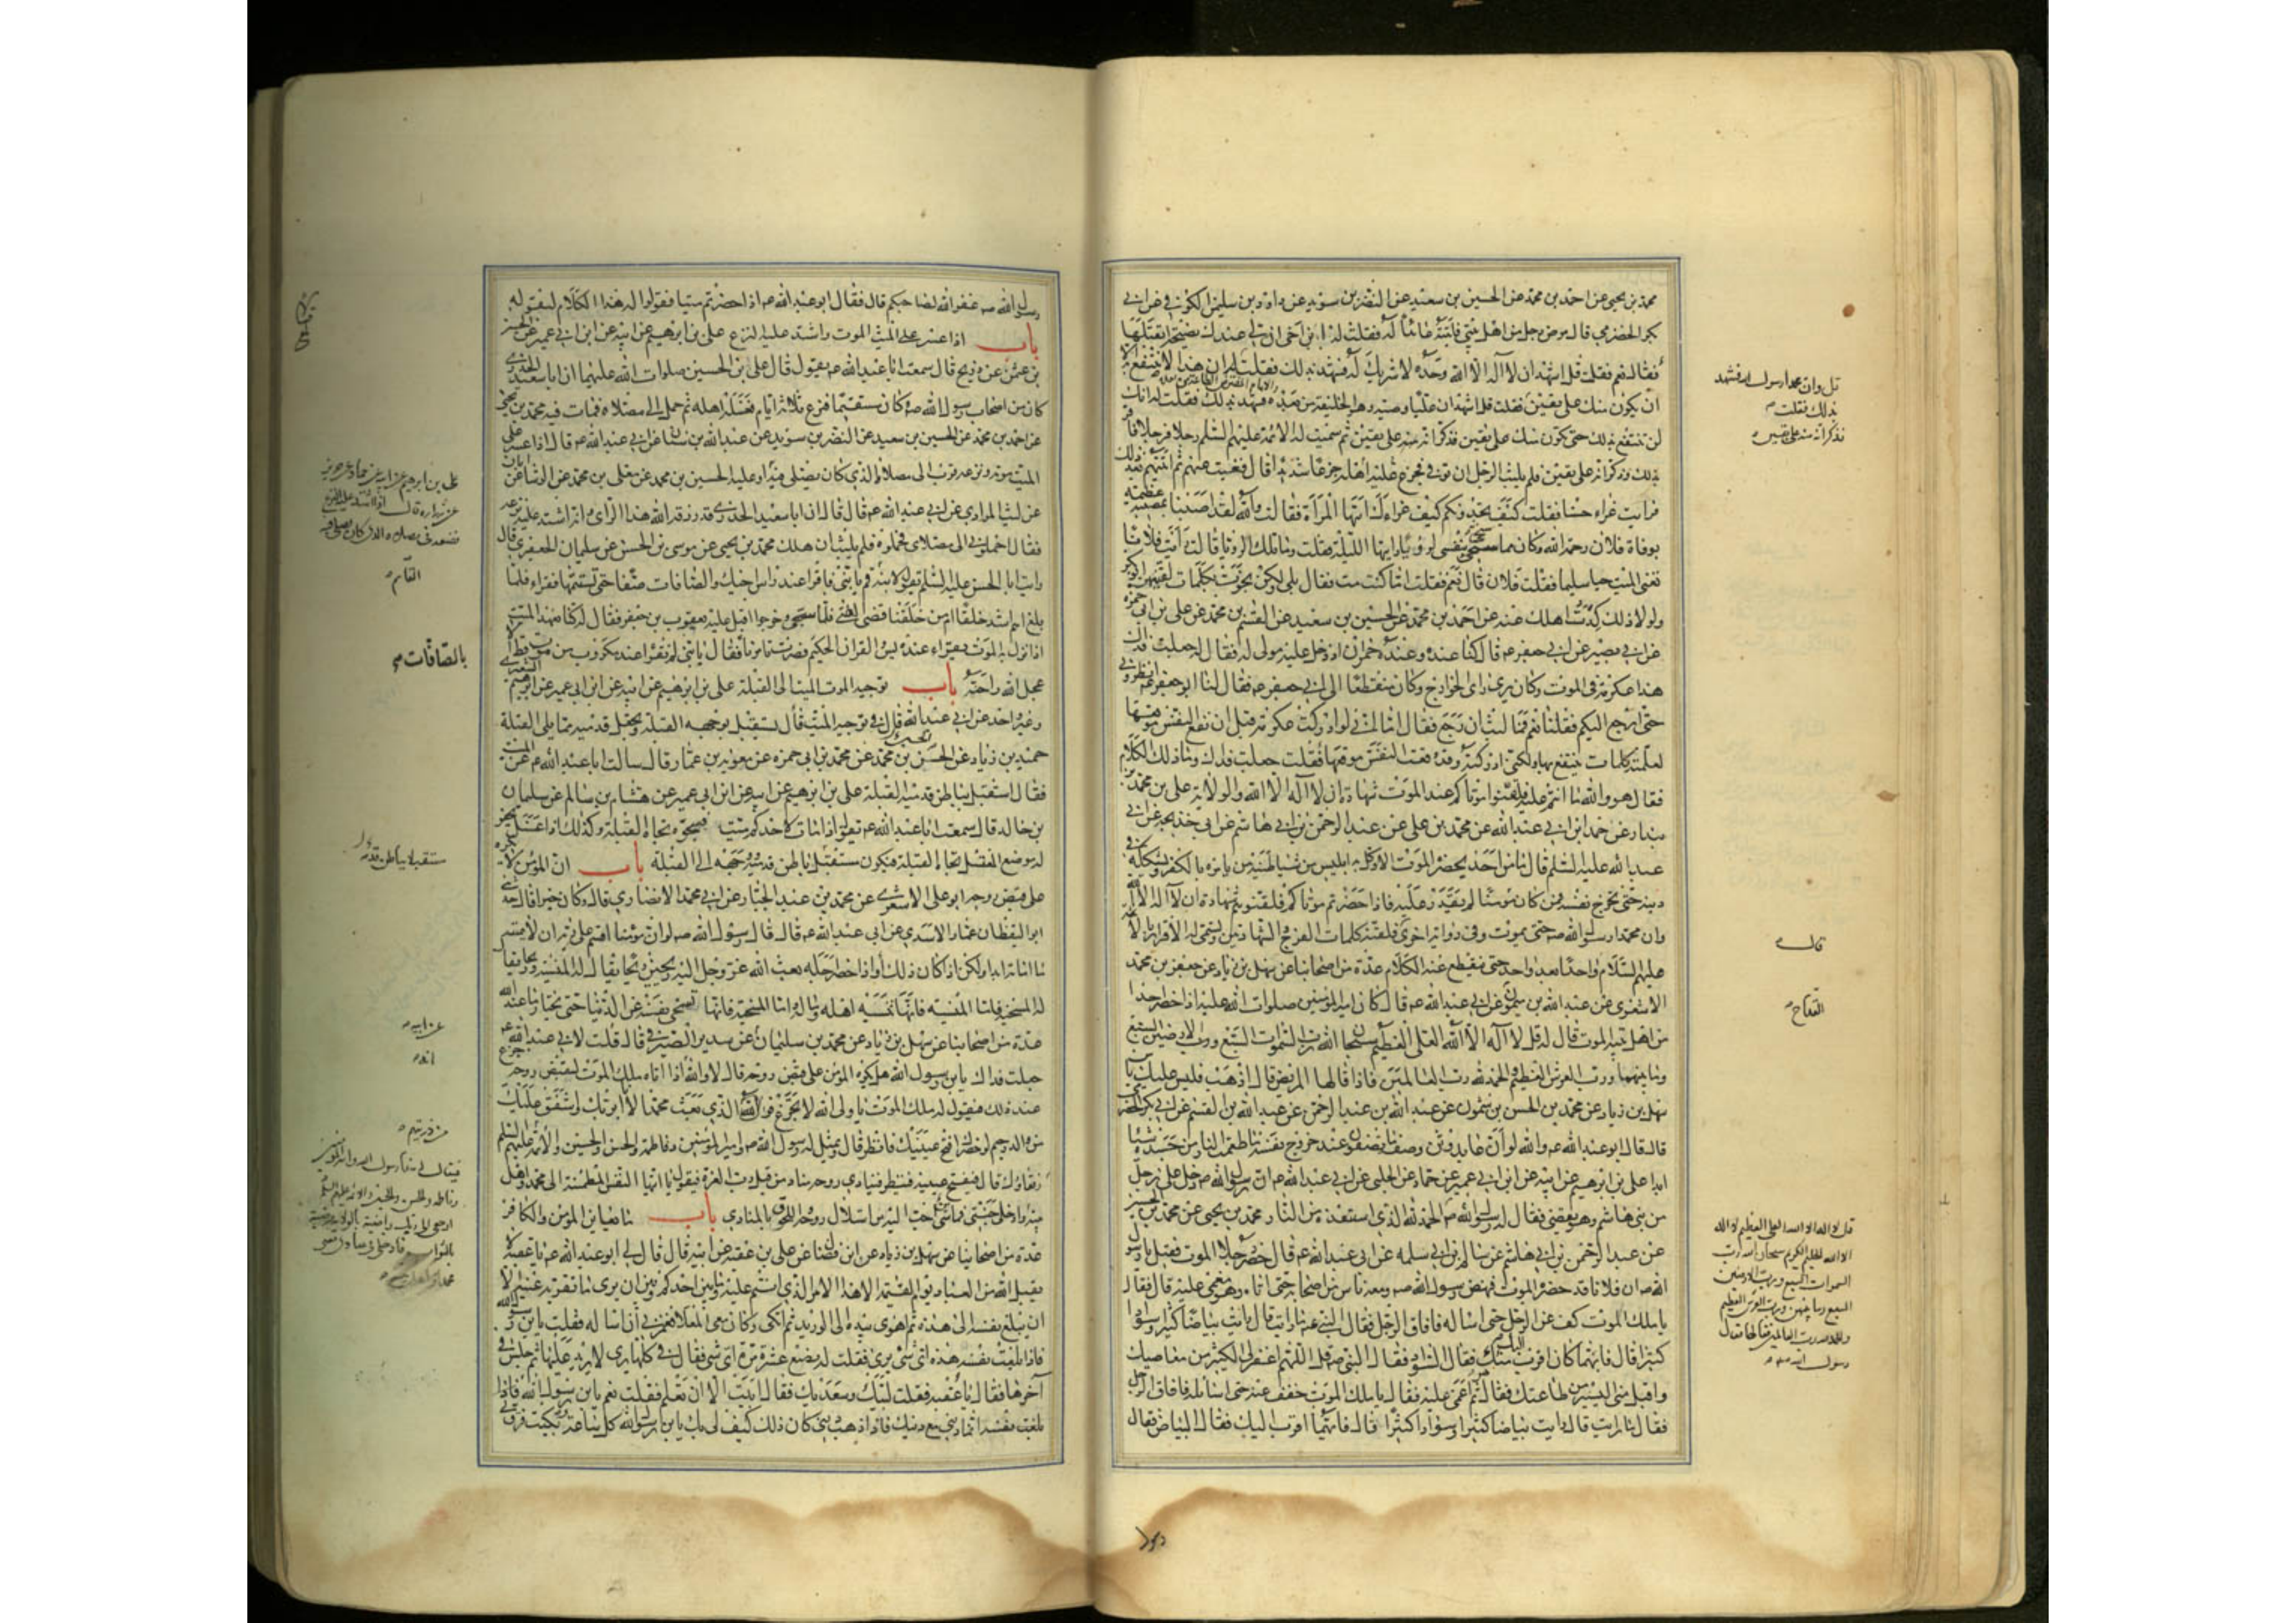 محمد بن يحيى عن احمد بن محمد عن الحسين بن سعيد عن النضر بن سويد عن داود بن سليمن الكوفي عن ابي
بكر الحضرمي قال مرض رجل من اهل بيتي فاتيته عائدا له فقلت له يا بن اخي ان لك عندي نصيحة اتقبلها
فقال نعم فقلت قل اشهد ان لا اله الا الله وحده لا شريك له فشهد بذلك فقلت ان هذا لا تنتفع به الا
ان يكون منك على يقين فقلت قل اشهد ان عليا وصيه وهو الخليفة من بعده فشهد بذلك فقلت له انك
لن تنتفع بذلك حتى يكون منك على يقين فذكر انه منه على يقين ثم سميت له الائمة عليهم السلم رجلا فرجلا فاقر
بذلك وذكر انه على يقين فلم يلبث الرجل ان توفي فجزع عليه اهله جزعا شديدا قال فغبت عنهم ثم اتيتهم بعد ذلك
فرايت عزاء حسنا فقلت كيف تجدونكم كيف عزاءك ايتها المرأة فقالت والله لقد اصبنا بمصيبة عظيمة
بوفاة فلان رحمه الله وكان مما سخى بنفسي لرؤيا رايتها الليلة فقلت وما تلك الرؤيا قالت رايت فلانا
تعني الميت حيا سليما فقلت فلان قال نعم فقلت اما كنت مت فقال بلى ولكن نجوت بكلمات لقنيهن ابو بكر
ولولا ذلك لكدت اهلك عنه عن احمد بن محمد عن الحسين بن سعيد عن القسم بن محمد عن على بن ابي حمزه
عن ابي بصير عن ابي جعفر ع قال كنا عنده وعنده حمران اذ دخل عليه مولى له فقال له جعلت فداك
هذا عكرمة في الموت وكان يرى راى الخوارج وكان منقطعا الى ابي جعفر ع فقال لنا ابو جعفر ع انظروني
حتى ارجع اليكم فقلنا نعم فما لبث ان رجع فقال اما اني لو ادركت عكرمة قبل ان تقع النفس موقعها
لعلمته كلمات ينتفع بها ولكني ادركته وقد وقعت النفس موقعها فقلت جعلت فداك وما ذلك الكلام
فقال هو والله ما انتم عليه فلقنوا موتاكم عند الموت شهادة ان لا اله الا الله والولاية على بن محمد بن
بندار عن احمد ابن ابي عبد الله عن محمد بن على عن عبد الرحمن بن ابي هاشم عن ابي خديجة عن ابي
عبد الله عليه السلم قال ما من احد يحضره الموت الا وكل به ابليس من شياطينه من يامره بالكفر ويشككه في
دينه حتى تخرج نفسه فمن كان مؤمنا لم يقدر عليه فاذا حضرتم موتاكم فلقنوهم شهادة ان لا اله الا الله
وان محمدا رسول الله ص حتى يموت وفي رواية اخرى فلقنه كلمات الفرج والشهادتين وتسمى له الاقرار بالائمة
عليهم السلام واحدا بعد واحد حتى ينقطع عنه الكلام عدة من اصحابنا عن سهل بن زياد عن جعفر بن محمد
الاشعري عن عبد الله بن ميمون عن ابي عبد الله ع قال كان امير المؤمنين صلوات الله عليه اذا حضر احدا
من اهل بيته الموت قال له قل لا اله الا الله العلى العظيم سبحان الله رب السموات السبع ورب الارضين السبع
وما بينهما ورب العرش العظيم والحمد لله رب العالمين فاذا قالها المريض قال اذهب فليس عليك باس
سهل بن زياد عن محمد بن الحسن بن شمون عن عبد الله بن عبد الرحمن عن عبد الله بن القسم عن ابي بكر الحضرمي
قال قال ابو عبد الله ع والله لو ان عابد وثن وصف ما تصفون عند خروج نفسه ما طعمت النار من جسده شيئا
ابدا على بن ابرهيم عن ابيه عن ابن ابي عمير عن حماد عن الحلبي عن ابي عبد الله ع ان رسول الله ص دخل على رجل
من بني هاشم وهو يقضي فقال له رسول الله ص الحمد لله الذي استنقذه من النار محمد بن يحيى عن محمد بن الحسين
عن عبد الرحمن بن ابي هاشم عن سالم بن ابي سلمه عن ابي عبد الله ع قال حضر رجلا الموت فقيل يا رسول
الله ص ان فلانا قد حضره الموت فنهض رسول الله ص ومعه ناس من اصحابه حتى اتاه وهو مغمى عليه قال فقال
يا ملك الموت كف عن الرجل حتى اساله فافاق الرجل فقال النبي ص ما رايت قال رايت بياضا كثيرا وسوادا
كثيرا قال فايهما كان اقرب اليك فقال السواد فقال النبي ص قل اللهم اغفر لى الكثير من معاصيك
واقبل مني اليسير من طاعتك فقال ثم اغمى عليه فقال يا ملك الموت خفف عنه حتى اسأله فافاق الرجل
فقال ما رايت قال رايت بياضا كثيرا وسوادا كثيرا قال فايهما اقرب اليك فقال البياض فقال
قل وان محمدا رسول الله فشهد
بذلك فقلت
فذكر انه منه على يقين
قال
القداح
قل لا اله الا الله العلى العظيم لا اله
الا الله الحليم الكريم سبحان الله رب
السموات السبع ورب الارضين
السبع وما بينهن ورب العرش العظيم
والحمد لله رب العالمين فقالها فقال
رسول الله ص
رسول الله ص غفر الله لصاحبكم قال فقال ابو عبد الله ع اذا حضرتم ميتا فقولوا له هذا الكلام ليقوله
باب اذا عسر على الميت الموت واشتد عليه النزع على بن ابرهيم عن ابيه عن ابن ابي عمير عن الحسين
بن عثمن عن ذريح قال سمعت ابا عبد الله ع يقول قال على بن الحسين صلوات الله عليهما ان ابا سعيد الخدري
كان من اصحاب رسول الله ص وكان مستقيما فنزع ثلاثة ايام فغسله اهله ثم حمل الى مصلاه فمات فيه محمد بن يحيى
عن احمد بن محمد عن الحسين بن سعيد عن النضر بن سويد عن عبد الله بن سنان عن ابي عبد الله ع قال اذا عسر على
الميت موته ونزعه قرب الى مصلاه الذي كان يصلى فيه الحسين بن محمد عن معلى بن محمد عن الوشا عن ابان
عن ليث المرادي عن ابي عبد الله ع قال قال ان ابا سعيد الخدري قد رزقه الله هذا الرأى وانه اشتد عليه نزعه
فقال احملوني الى مصلاى فحملوه فلم يلبث ان هلك محمد بن يحيى عن موسى بن الحسن عن سليمان الجعفري قال
رايت ابا الحسن عليه السلم يقول لابنه قم يا بني فاقرا عند راس اخيك والصافات صفا حتى تستتمها فقراء فلما
بلغ اهم اشد خلقا ام من خلقنا قضى الفتى فلما سجى وخرجوا اقبل عليه يعقوب بن جعفر فقال له كنا نعهد الميت
اذا نزل به الموت يقراء عنده يس والقران الحكيم فصرت تامرنا فقال يا بني لم تقرا عند مكروب من موت قط الا
عجل الله راحته باب توجيه الموت الميت الى القبلة على بن ابرهيم عن ابيه عن ابن ابي عمير عن ابرهيم الشعيري
وغير واحد عن ابي عبد الله قال في توجيه الميت قال تستقبل بوجهه القبلة وتجعل قدميه مما يلى القبلة
حميد بن زياد عن الحسن بن محمد عن محمد بن ابي حمزه عن معويه بن عمار قال سالت ابا عبد الله ع عن الميت
فقال استقبل بباطن قدميه القبلة على بن ابرهيم عن ابيه عن ابن ابي عمير عن هشام بن سالم عن سليمان
بن خالد قال سمعت ابا عبد الله ع يقول اذا مات لاحدكم ميت فسجوه تجاه القبلة وكذلك اذا غسل يحفر
له موضع المغتسل تجاه القبلة فيكون مستقبل باطن قدميه ووجهه الى القبلة باب ان المؤمن لا يكره
على قبض روحه ابو على الاشعري عن محمد بن عبد الجبار عن ابي محمد الانصاري قال وكان خيرا قال حدثني
ابو اليقظان عمار الاسدي عن ابي عبد الله ع قال قال رسول الله ص لو ان مؤمنا اقسم على ربه ان لا يميته
ما اماته ابدا ولكن اذا كان ذلك او اذا حضر اجله بعث الله عز وجل اليه ريحين ريحا يقال له المنسية وريحا يقال
له المسخية فاما المنسيه فانها تنسيه اهله وماله واما المسخية فانها تسخى نفسه عن الدنيا حتى يختار ما عند الله
عدة من اصحابنا عن سهل بن زياد عن محمد بن سليمان عن سدير الصيرفي قال قلت لابي عبد الله ع
جعلت فداك يا بن رسول الله هل يكره المؤمن على قبض روحه قال لا والله اذا اتاه ملك الموت ليقبض روحه جزع
عند ذلك فيقول له ملك الموت يا ولى الله لا تجزع فو الذي بعث محمدا لانا ابر بك واشفق عليك
من والد رحيم لو حضرك افتح عينيك فانظر قال ويمثل له رسول الله ص وامير المؤمنين وفاطمة والحسن والحسين والائمة عليهم السلم
رفقاؤك قال فيفتح عينيه فينظر فينادي روحه مناد من قبل رب العزة فيقول يا ايتها النفس المطمئنة الى محمد واهل
بيته وادخلى جنتي فما شئ احب اليه من استلال روحه واللحوق بالمنادي باب ما يعاين المؤمن والكافر
عدة من اصحابنا عن سهل بن زياد عن ابن فضال عن على بن عقبه عن ابيه قال قال لى ابو عبد الله ع يا عقبه لا
يقبل الله من العباد يوم القيمة الا هذا الامر الذي انتم عليه وما بين احدكم وبين ان يرى ما تقر به عينيه الا
ان يبلغ نفسه الى هذه ثم اهوى بيده الى الوريد ثم اتكى وكان معى المعلا فغمزني ان اساله فقلت يا بن رسول الله
فاذا بلغت نفسه هذه اى شئ يرى فقلت له بضع عشرة مرة اى شئ فقال في كلها يرى لا يزيد عليها ثم جلس في
آخرها فقال يا عقبه فقلت لبيك وسعديك فقال ابيت الا ان تعلم فقلت نعم يا بن رسول الله فاذا
على بن ابرهيم عن ابيه عن حماد عن حريز
عن زراره قال اذا اشتد عليه النزع
فضعه في مصلاه الذي كان يصلى فيه
القاسم
بالصافات
مستقبلا بباطن قدميه
عن ابيه
انه
من ذريتهم